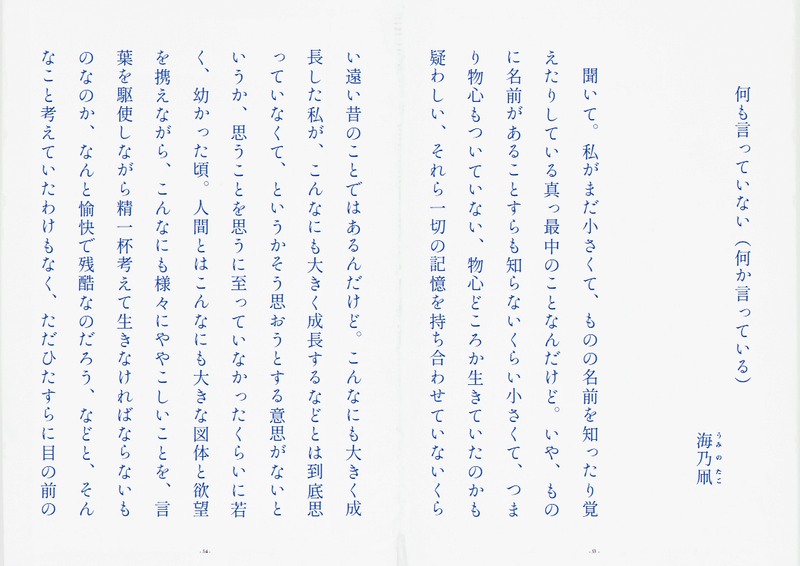 何も言っていない（何か言っている）
海乃凧
うみのたこ
聞いて。私がまだ小さくて、ものの名前を知ったり覚
えたりしている真っ最中のことなんだけど。いや、もの
に名前があることすらも知らないくらい小さくて、つま
り物心もついていない、物心どころか生きていたのかも
疑わしい、それら一切の記憶を持ち合わせていないくら
い遠い昔のことではあるんだけど。こんなにも大きく成
長した私が、こんなにも大きく成長するなどとは到底思
っていなくて、というかそう思おうとする意思がないと
いうか、思うことを思うに至っていなかったくらいに若
く、幼かった頃。人間とはこんなにも大きな図体と欲望
を携えながら、こんなにも様々にややこしいことを、言
葉を駆使しながら精一杯考えて生きなければならないも
のなのか、なんと愉快で残酷なのだろう、などと、そん
なこと考えていたわけもなく、ただひたすらに目の前の